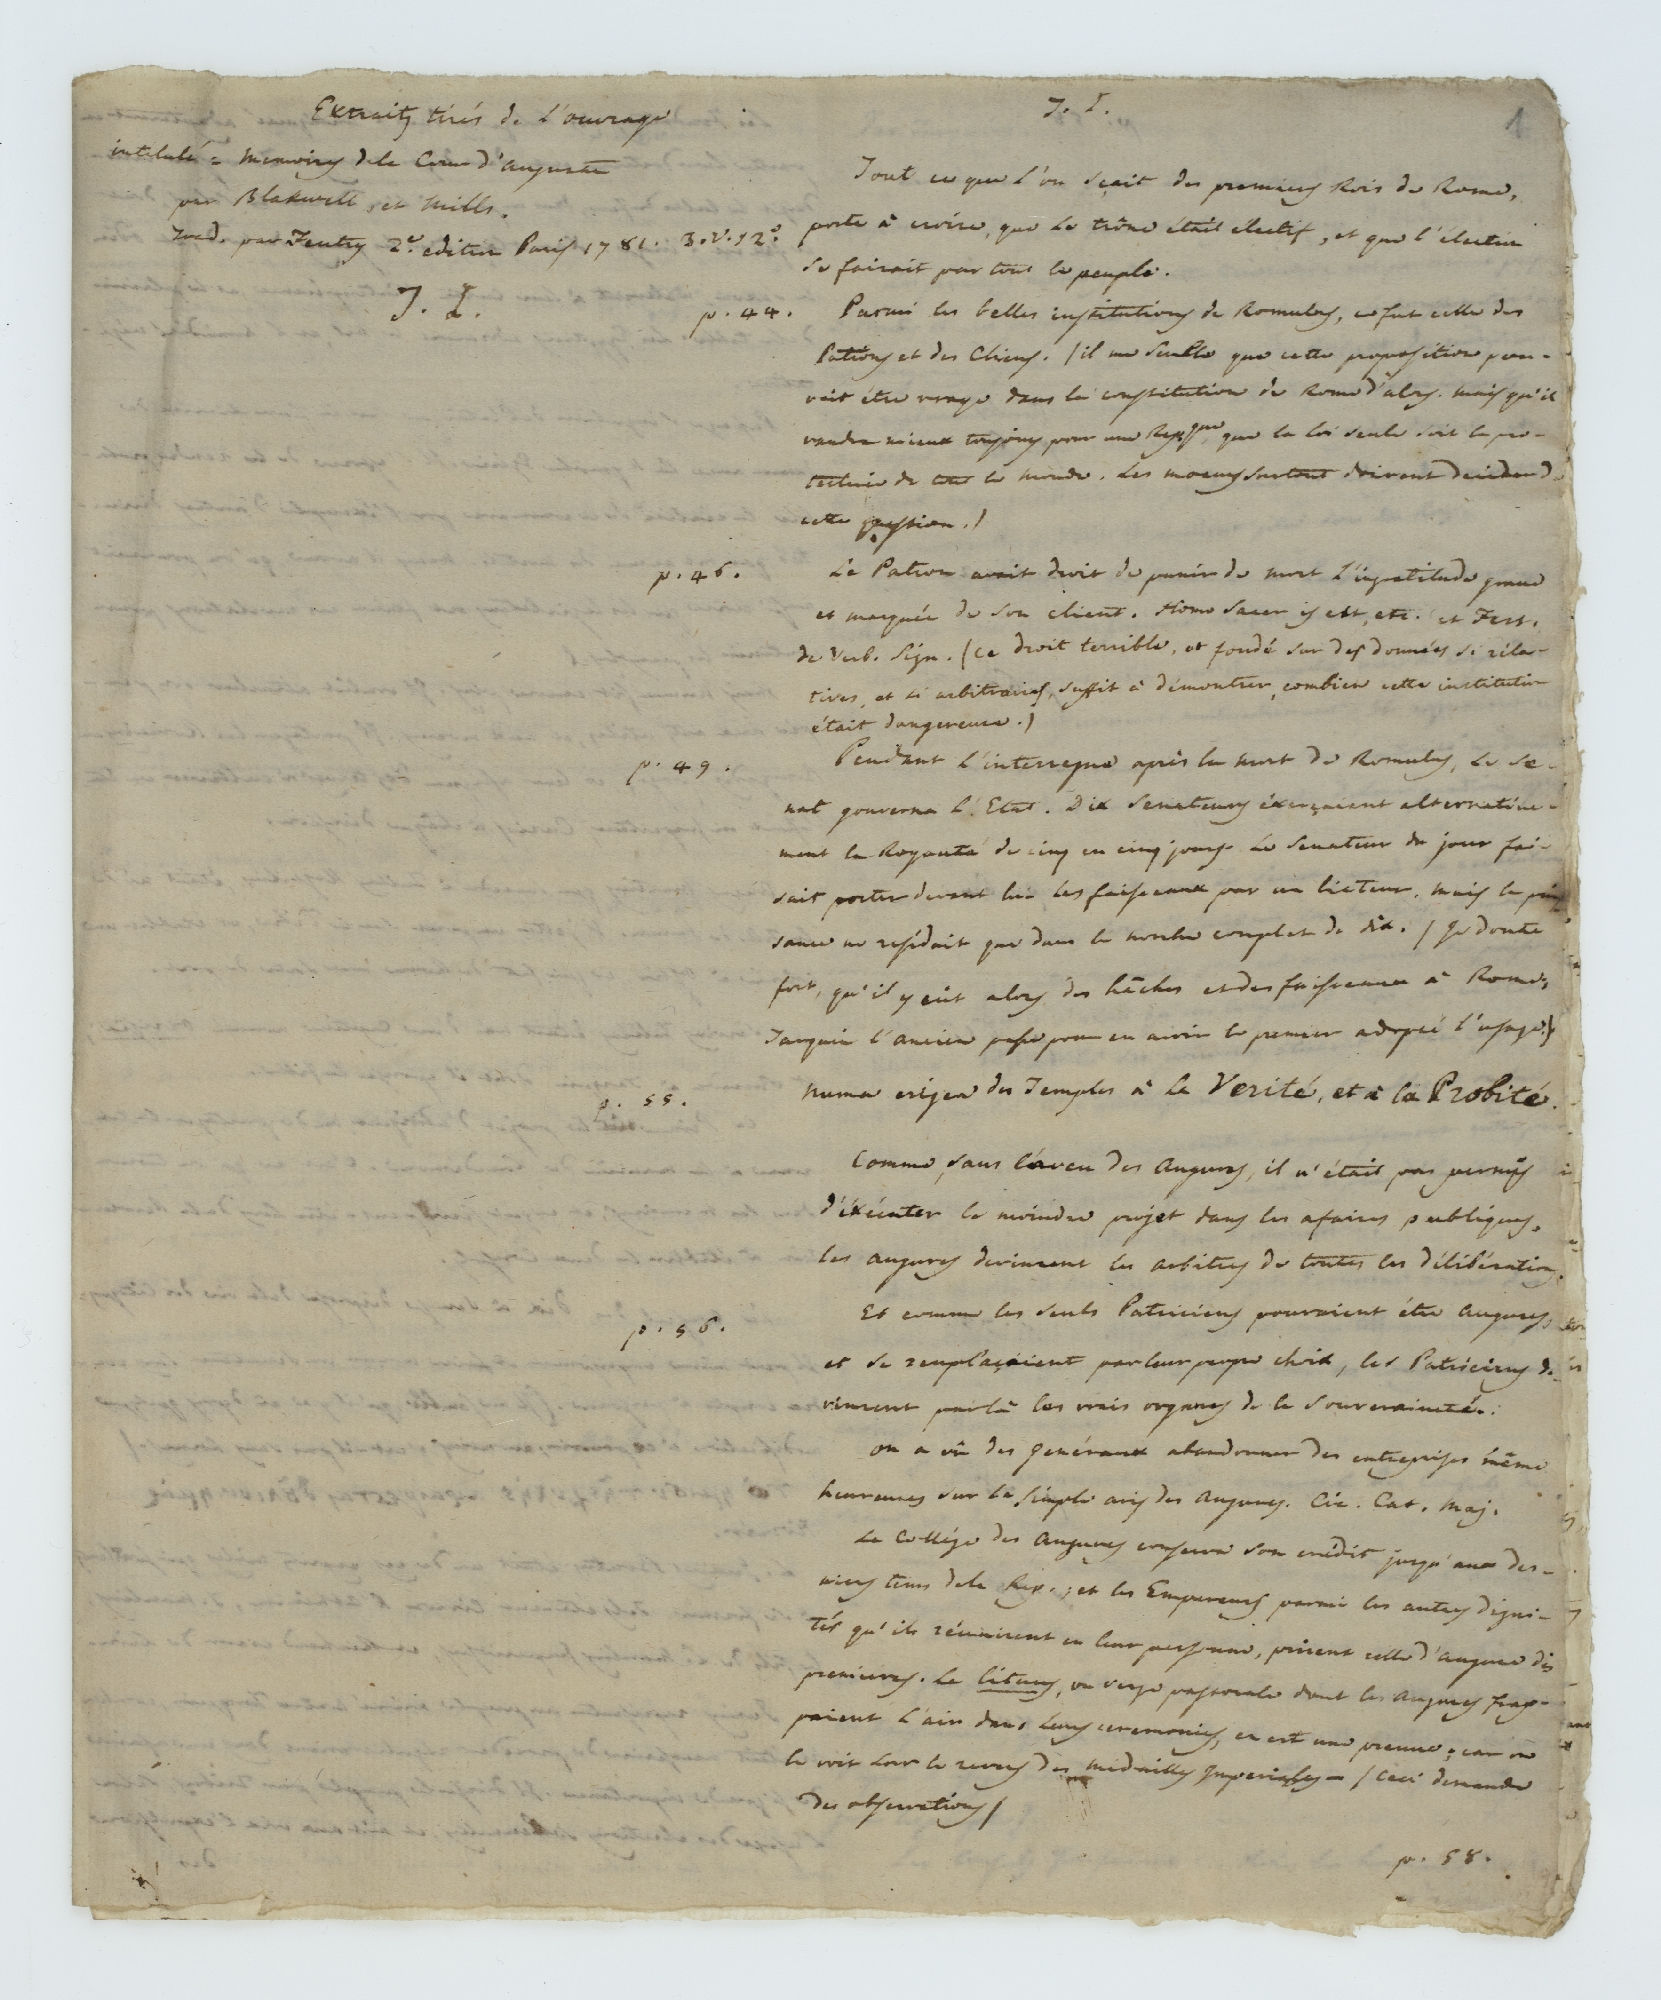 Extraits tirés de l'ouvrage
intitulé = Memoires de la Cour d'auguste
par Blakwell, et Mills.
Trad. par Feutry 2.e edition Paris 1781. 3.v.12.o
T. I.
T. I.
1
Tout ce que l'on sçait des premiers Rois de Rome,
porte à croire, que le trône était électif, et que l'élection
se faisait par tout le peuple.
p. 44.
Parmi les belles institutions de Romulus, ce fut celle des
Patrons et des Cliens. (il me semble que cette proposition pou-
vait être vraye dans la constitution de Rome d'alors. mais qu'il
vaudra mieux toujours pour une Repque, que la loi seule soit la pro-
tectrice de tout le monde. Les moeurs surtout doivent decider d
cette question.)
p. 46.
Le Patron avait droit de punir de mort l'ingratitude grave
et marquée de son client. Homo sacer is est, etc. et Fest.
de Verb. Sign. (Ce droit terrible, et fondé sur des données si réla-
tives, et si arbitraires, suffit à démontrer, combien cette institution
était dangereuse.)
p. 49.
Pendant l'interregne après la mort de Romulus, le Se-
nat gouverna l'Etat. Dix Senateurs exerçaient alternative-
ment la Royauté de cinq en cinq jours. Le Senateur du jour fai-
sait porter devant lui les faisceaux par un licteur. mais la puis-
sance ne residait que dans le nombre complet de dix. (Je doute
fort, qu'il y eût alors des hâches et des faisceaux à Rome,
Tarquin l'ancien passe pour en avoir le premier adopté l'usage.)
p. 55.
Numa erigea des Temples à la Verité, et à la Probité.
Comme, sans l'aveu des Augures, il n'était pas permis
d'éxécuter le moindre projet dans les afaires publiques,
les augures devinrent les arbitres de toutes les délibérations.
p. 56.
Et comme les seuls Patriciens pouvaient être Augures,
et se remplaçaient par leur propre choix, les Patriciens de-
vinrent par là les vrais organes de la Souveraineté.
On a vû des Généraux abandonner des entreprises même
heureuses sur le simple avis des Augures. Cic. Cat. Maj.
Le Collége des Augures conserva son crédit jusqu'aux der-
niers tems de la Rep.; et les Empereurs parmi les autres digni-
tés qu'ils réunirent en leur personne, prirent celle d'Augure des
premieres. Le lituus, ou verge pastorale dont les Augures frap-
paient l'air dans leurs ceremonies, en est une preuve; car on
le voit sur le revers des médailles Imperiales = (Ceci demande
des observations)
p. 58.